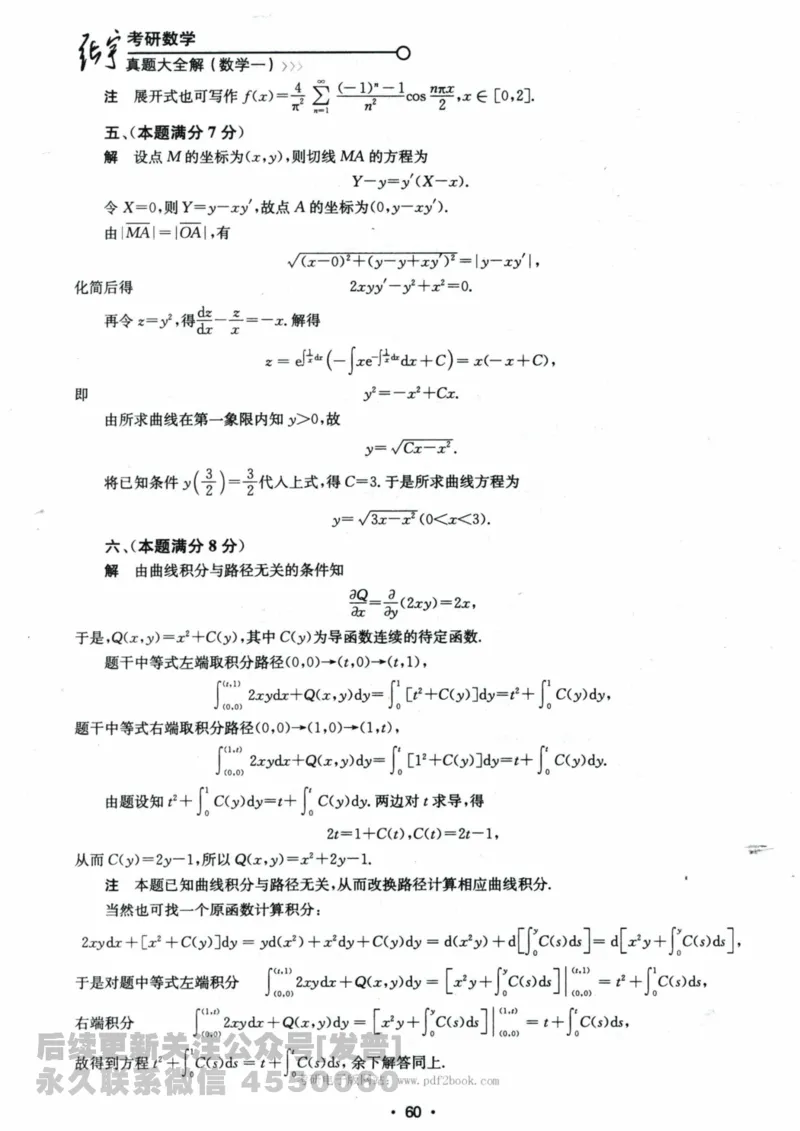 张宇 考研数学
真题大全解(数学一)>>>
注 展开式也可写作 f(x)=\frac{4}{π²}\sum_{n=1}^{∞}\frac{(-1)^n-1}{n²}cos\frac{nπx}{2},x∈[0,2].
五、(本题满分7分)
解 设点 M 的坐标为(x,y),则切线 MA 的方程为
Y-y=y'(X-x).
令 X=0,则 Y=y-xy',故点 A 的坐标为(0,y-xy').
由|\overline{MA}|=|\overline{OA}|,有
\sqrt{(x-0)²+(y-y+xy')²}=|y-xy'|,
化简后得 2xyy'-y²+x²=0.
再令 z=y²,得\frac{dz}{dx}-\frac{z}{x}=-x.解得
z=e^{∫\frac{1}{x}dx}(-∫xe^{-∫\frac{1}{x}dx}dx+C)=x(-x+C),
即 y²=-x²+Cx.
由所求曲线在第一象限内知 y>0,故
y=\sqrt{Cx-x²}.
将已知条件 y(\frac{3}{2})=\frac{3}{2}代入上式,得 C=3.于是所求曲线方程为
y=\sqrt{3x-x²}(0<x<3).
六、(本题满分8分)
解 由曲线积分与路径无关的条件知
\frac{∂Q}{∂x}=\frac{∂}{∂y}(2xy)=2x,
于是,Q(x,y)=x²+C(y),其中 C(y)为导函数连续的待定函数.
题干中等式左端取积分路径(0,0)→(t,0)→(t,1),
∫_{(0,0)}^{(t,1)}2xydx+Q(x,y)dy=∫_0^1[t²+C(y)]dy=t²+∫_0^1C(y)dy,
题干中等式右端取积分路径(0,0)→(1,0)→(1,t),
∫_{(0,0)}^{(1,t)}2xydx+Q(x,y)dy=∫_0^t[1²+C(y)]dy=t+∫_0^tC(y)dy.
由题设知 t²+∫_0^1C(y)dy=t+∫_0^tC(y)dy.两边对 t 求导,得
2t=1+C(t),C(t)=2t-1,
从而 C(y)=2y-1,所以 Q(x,y)=x²+2y-1.
注 本题已知曲线积分与路径无关,从而改换路径计算相应曲线积分.
当然也可找一个原函数计算积分:
2xydx+[x²+C(y)]dy=yd(x²)+x²dy+C(y)dy=d(x²y)+d[∫_0^yC(s)ds]=d[x²y+∫_0^yC(s)ds],
于是对题中等式左端积分 ∫_{(0,0)}^{(t,1)}2xydx+Q(x,y)dy=[x²y+∫_0^yC(s)ds]|_{(0,0)}^{(t,1)}=t²+∫_0^1C(s)ds,
右端积分 ∫_{(0,0)}^{(1,t)}2xydx+Q(x,y)dy=[x²y+∫_0^yC(s)ds]|_{(0,0)}^{(1,t)}=t+∫_0^tC(s)ds,
后续更新关注公众号[发普]
故得到方程 t²+∫_0^1C(s)ds=t+∫_0^tC(s)ds,余下解答同上.
永久联系微信 4550060
www.pdf2book.com
·60·